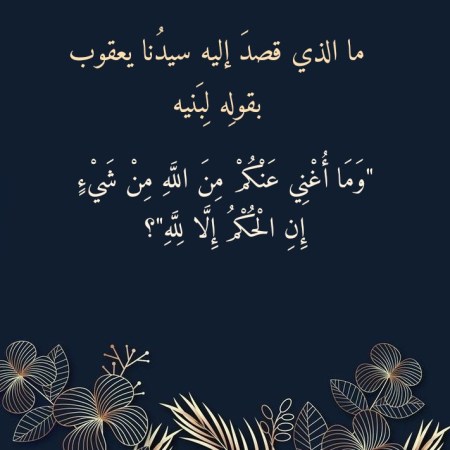 ما الذي قصدَ إليه سيدُنا يعقوب
بقولِه لِبَنيه
"وَمَا أُغْنِي عَنْكُمْ مِنَ اللَّهِ مِنْ شَيْءٍ
إِنِ الْحُكْمُ إِلَّا لِلَّهِ"؟